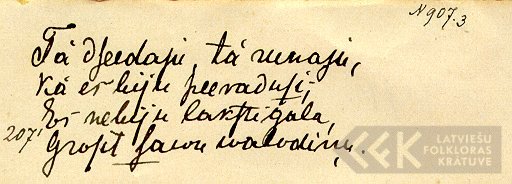 N907.3
Tá dseedaju, tá runaju,
Ká es biju peeradusi;
Es nebiju lakstigala,
207, Grosit sawu walodiņu.
LATVIEŠU
FOLKLORAS
KRĀTUVE